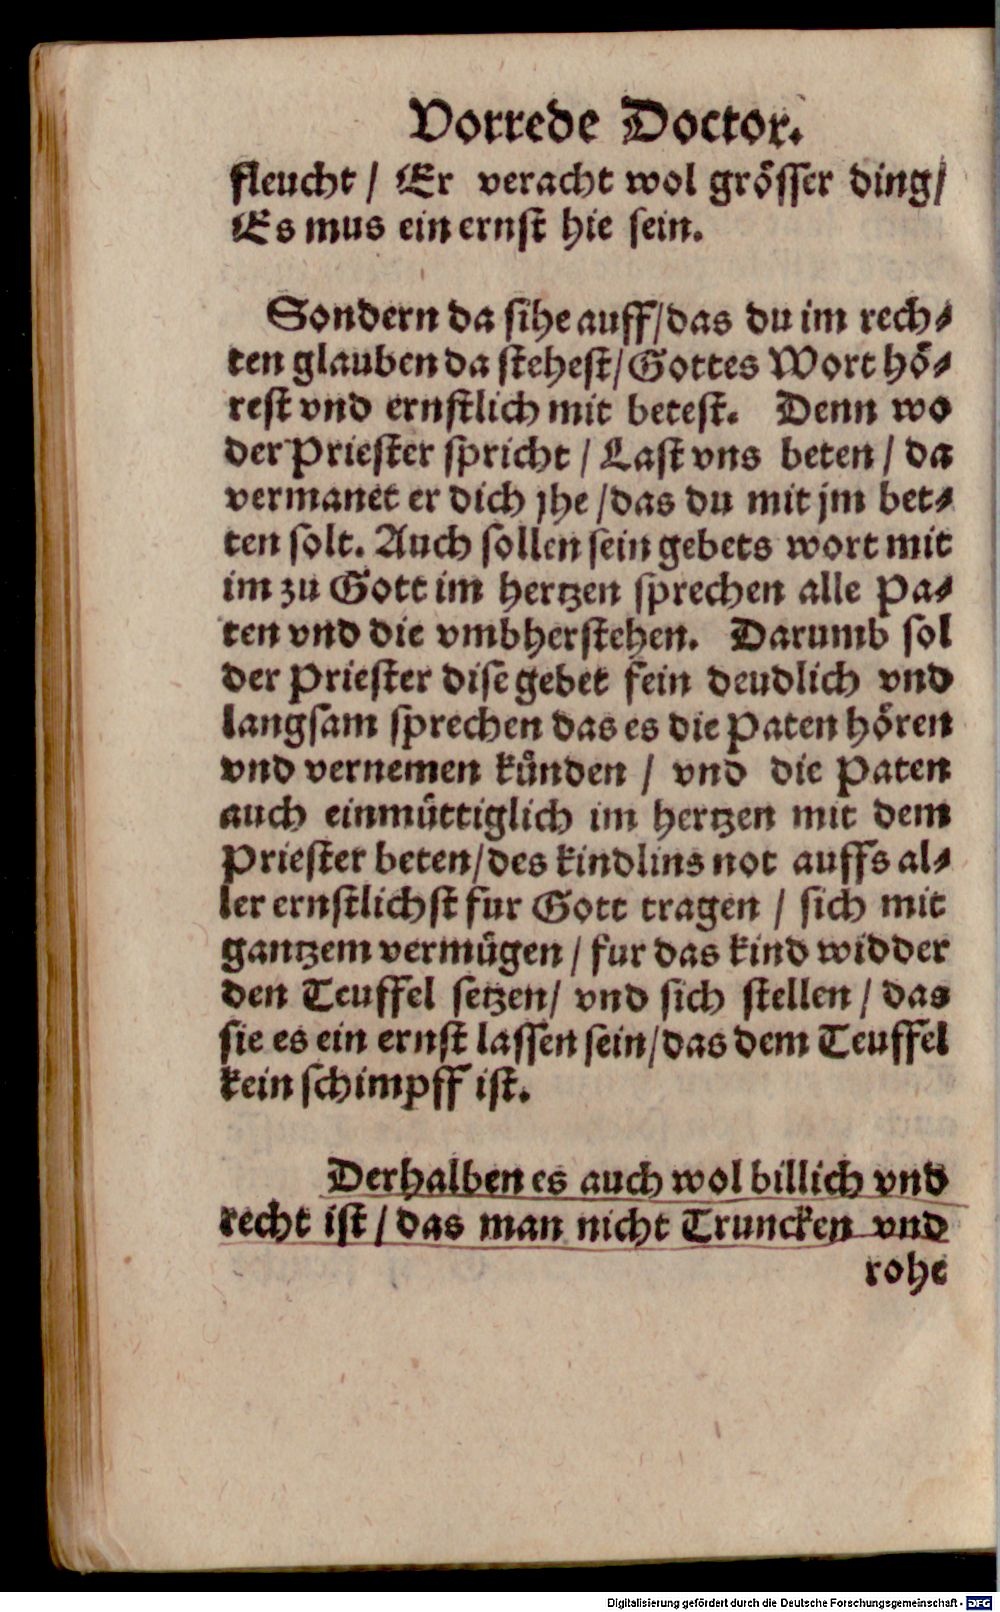 Vorrede Doctor.
fleucht / Er veracht wol grösser ding/
Es mus ein ernst hie sein.
Sondern da sihe auff/das du im rech⸗
ten glauben da stehest/Gottes Wort hö⸗
rest vnd ernstlich mit betest. Denn wo
der Priester spricht / Last vns beten / da
vermanet er dich jhe /das du mit jm bet⸗
ten solt. Auch sollen sein gebets wort mit
im zu Gott im hertzen sprechen alle Pa⸗
ten vnd die vmbherstehen. Darumb sol
der Priester dise gebet fein deudlich vnd
langsam sprechen das es die Paten hören
vnd vernemen künden / vnd die Paten
auch einmüttiglich im hertzen mit dem
Priester beten/des kindlins not auffs al⸗
ler ernstlichst fur Gott tragen / sich mit
gantzem vermügen / fur das kind widder
den Teuffel setzen/ vnd sich stellen / das
sie es ein ernst lassen sein/das dem Teuffel
kein schimpff ist.
Derhalben es auch wol billich vnd
recht ist / das man nicht Truncken vnd
rohe
Digitalisierung gefördert durch die Deutsche Forschungsgemeinschaft - DFG